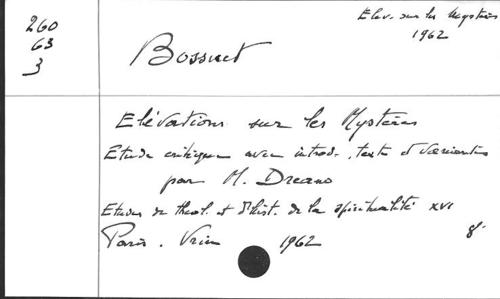 260
63
3
Elev. sur les Mystères
1962
Bossuet
Elévations sur les Mystères
Etude critique avec introd., texte et variantes
par M. Dreano
Etudes de theol. et d'hist. de la spiritualité XVI
Paris. Vrin 1962 8°